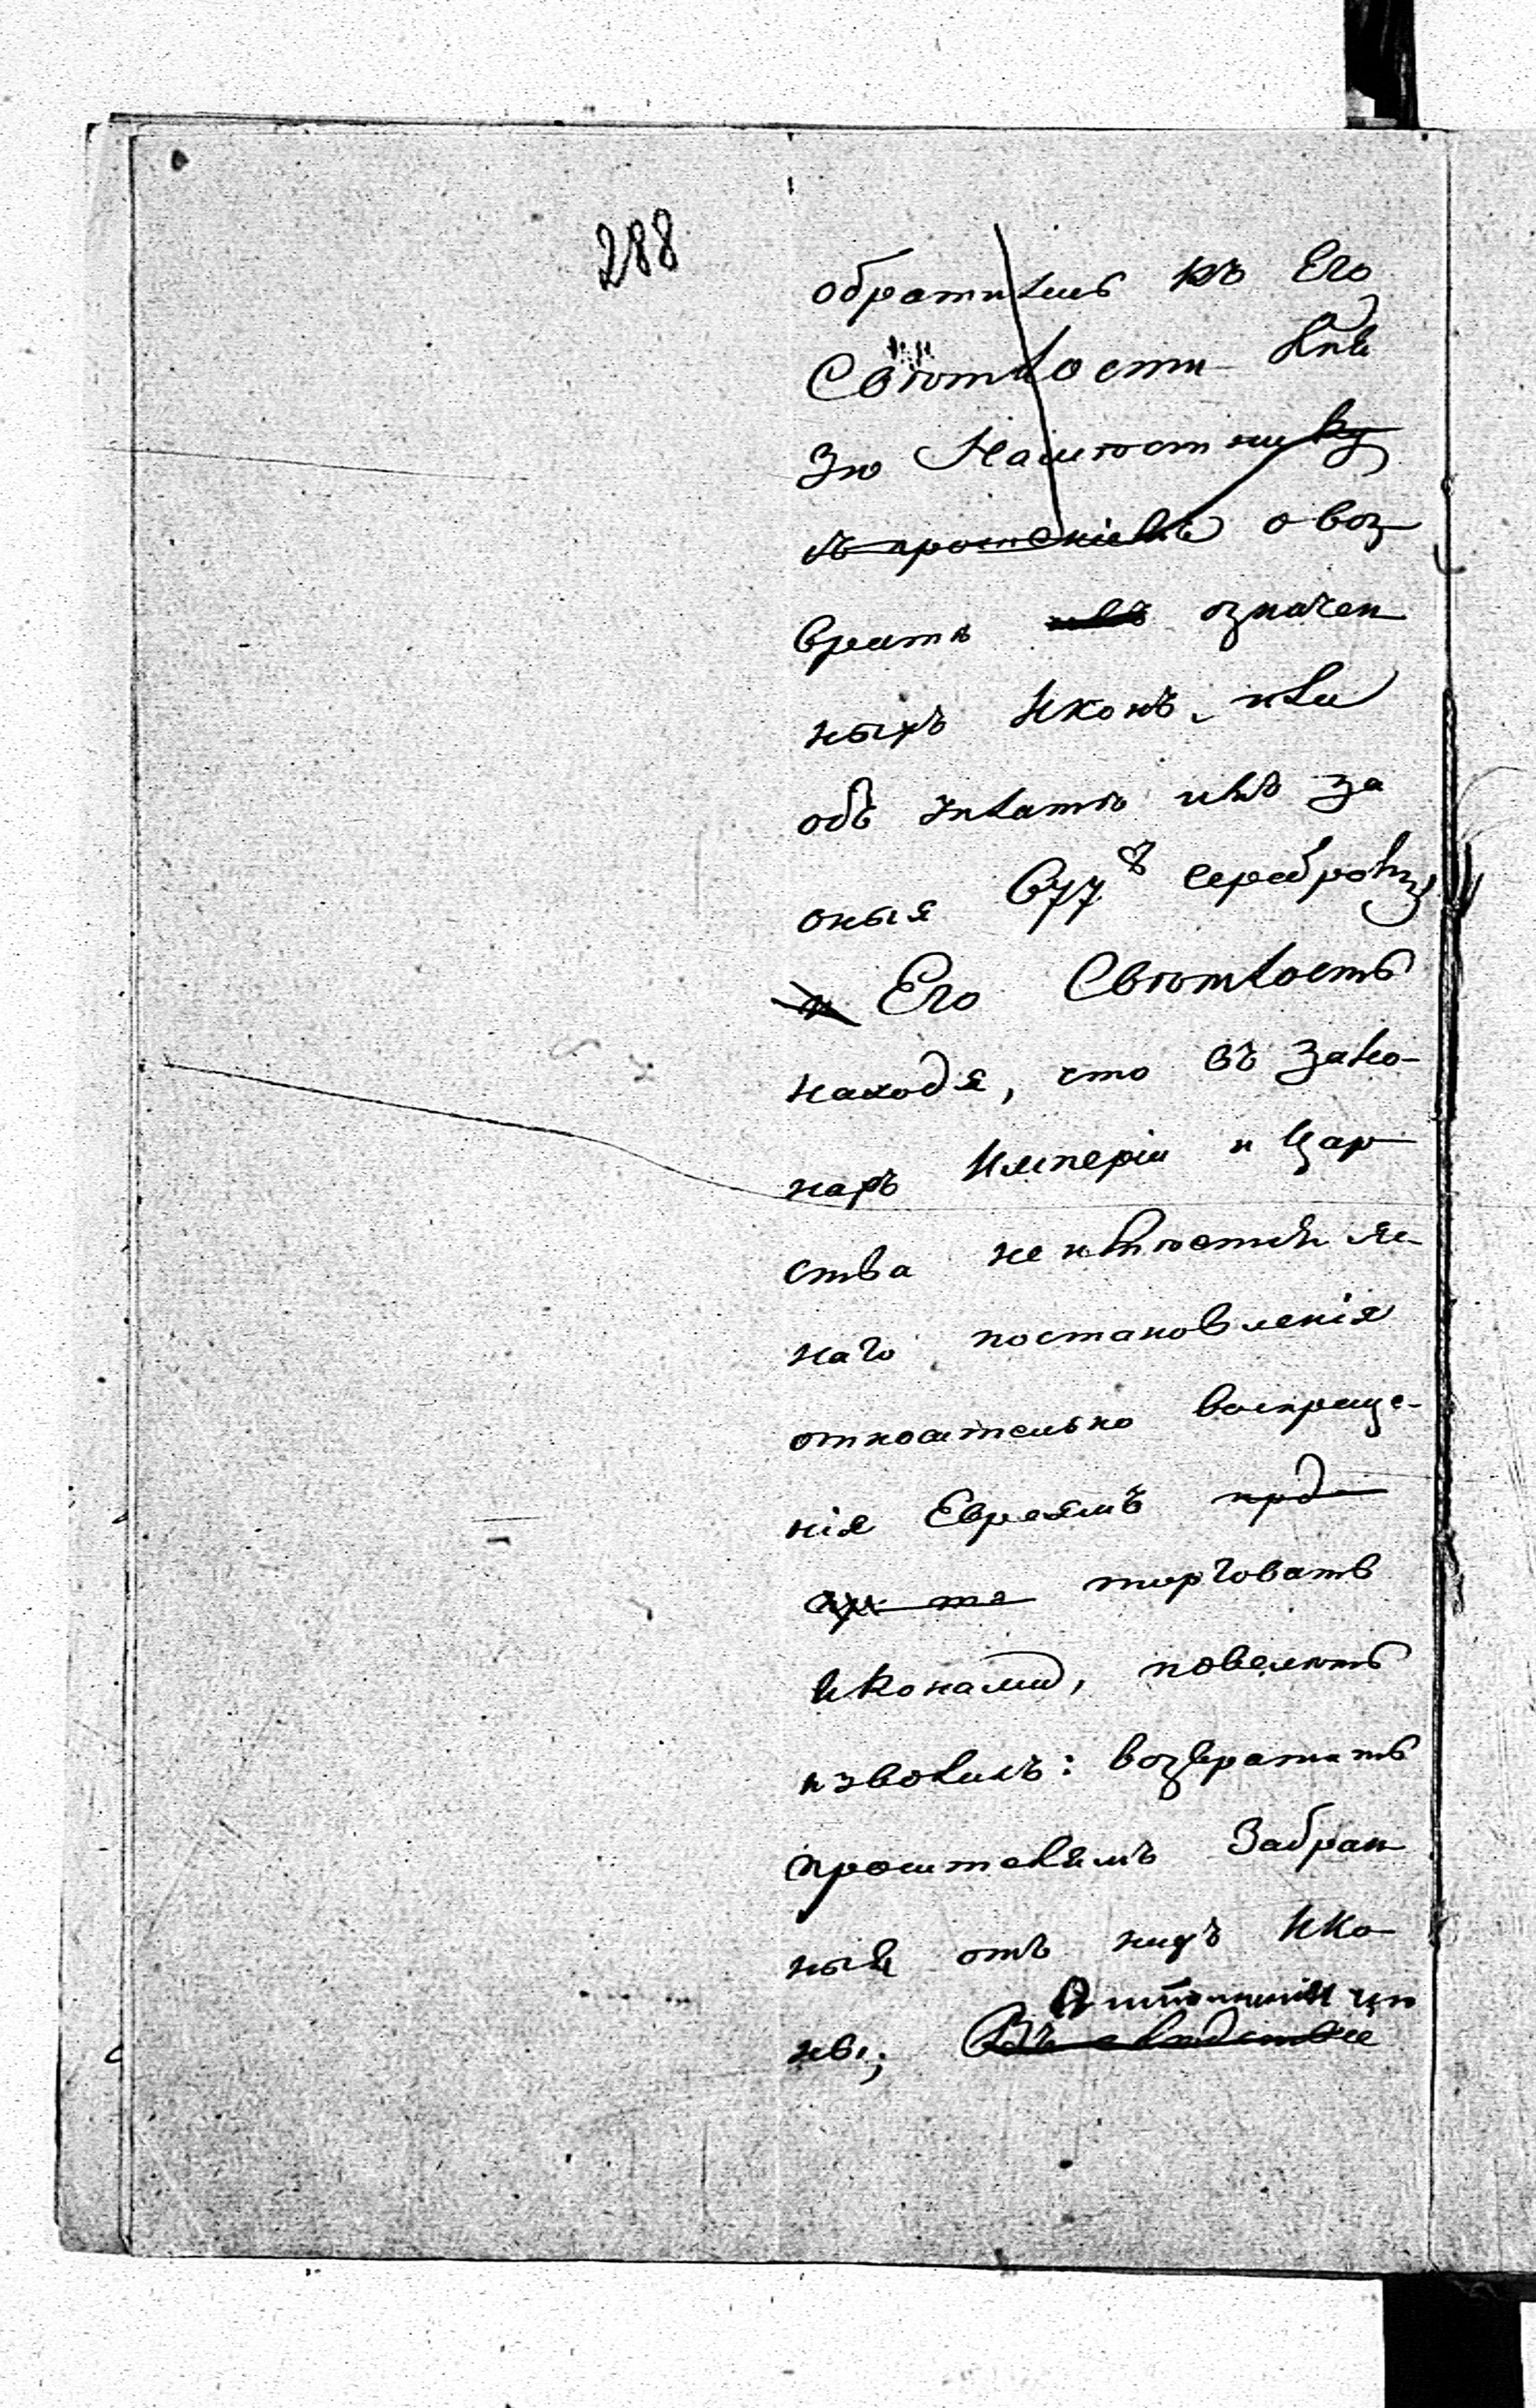 288
обратились къ Его
Свѣтлости Кня
зю Намѣстнику
съ прошеніемъ о воз
вратѣ имъ означен
ныхъ Иконъ, или
объ уплатѣ имъ за
оныя 677 р серебромъ,
и Его Свѣтлость
находя, что въ зако-
нахъ Имперіи и Цар
ства не имѣется яс-
наго постановленія
относительно воспреще-
нія Евреямъ прода
торговать
Иконами, повелѣть
изволилъ: возвратить
просителямъ Забран
ныя отъ нихъ Ико
ны; Въ слѣдствіе